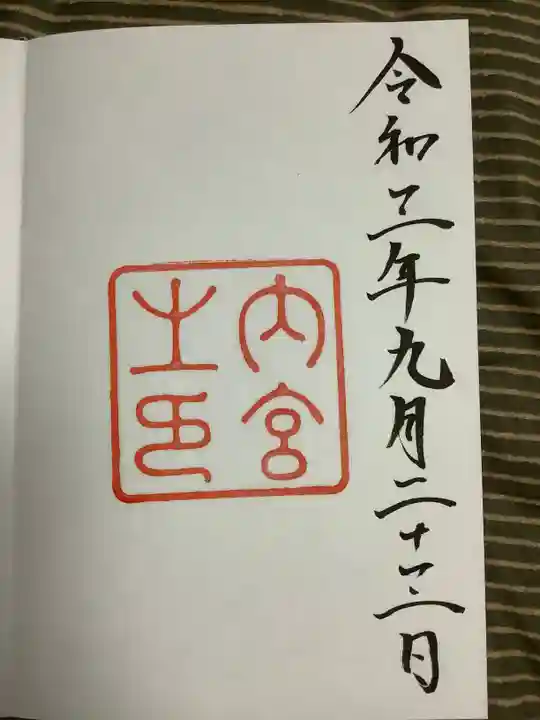 令和三年九月二十三日
内宮
之印